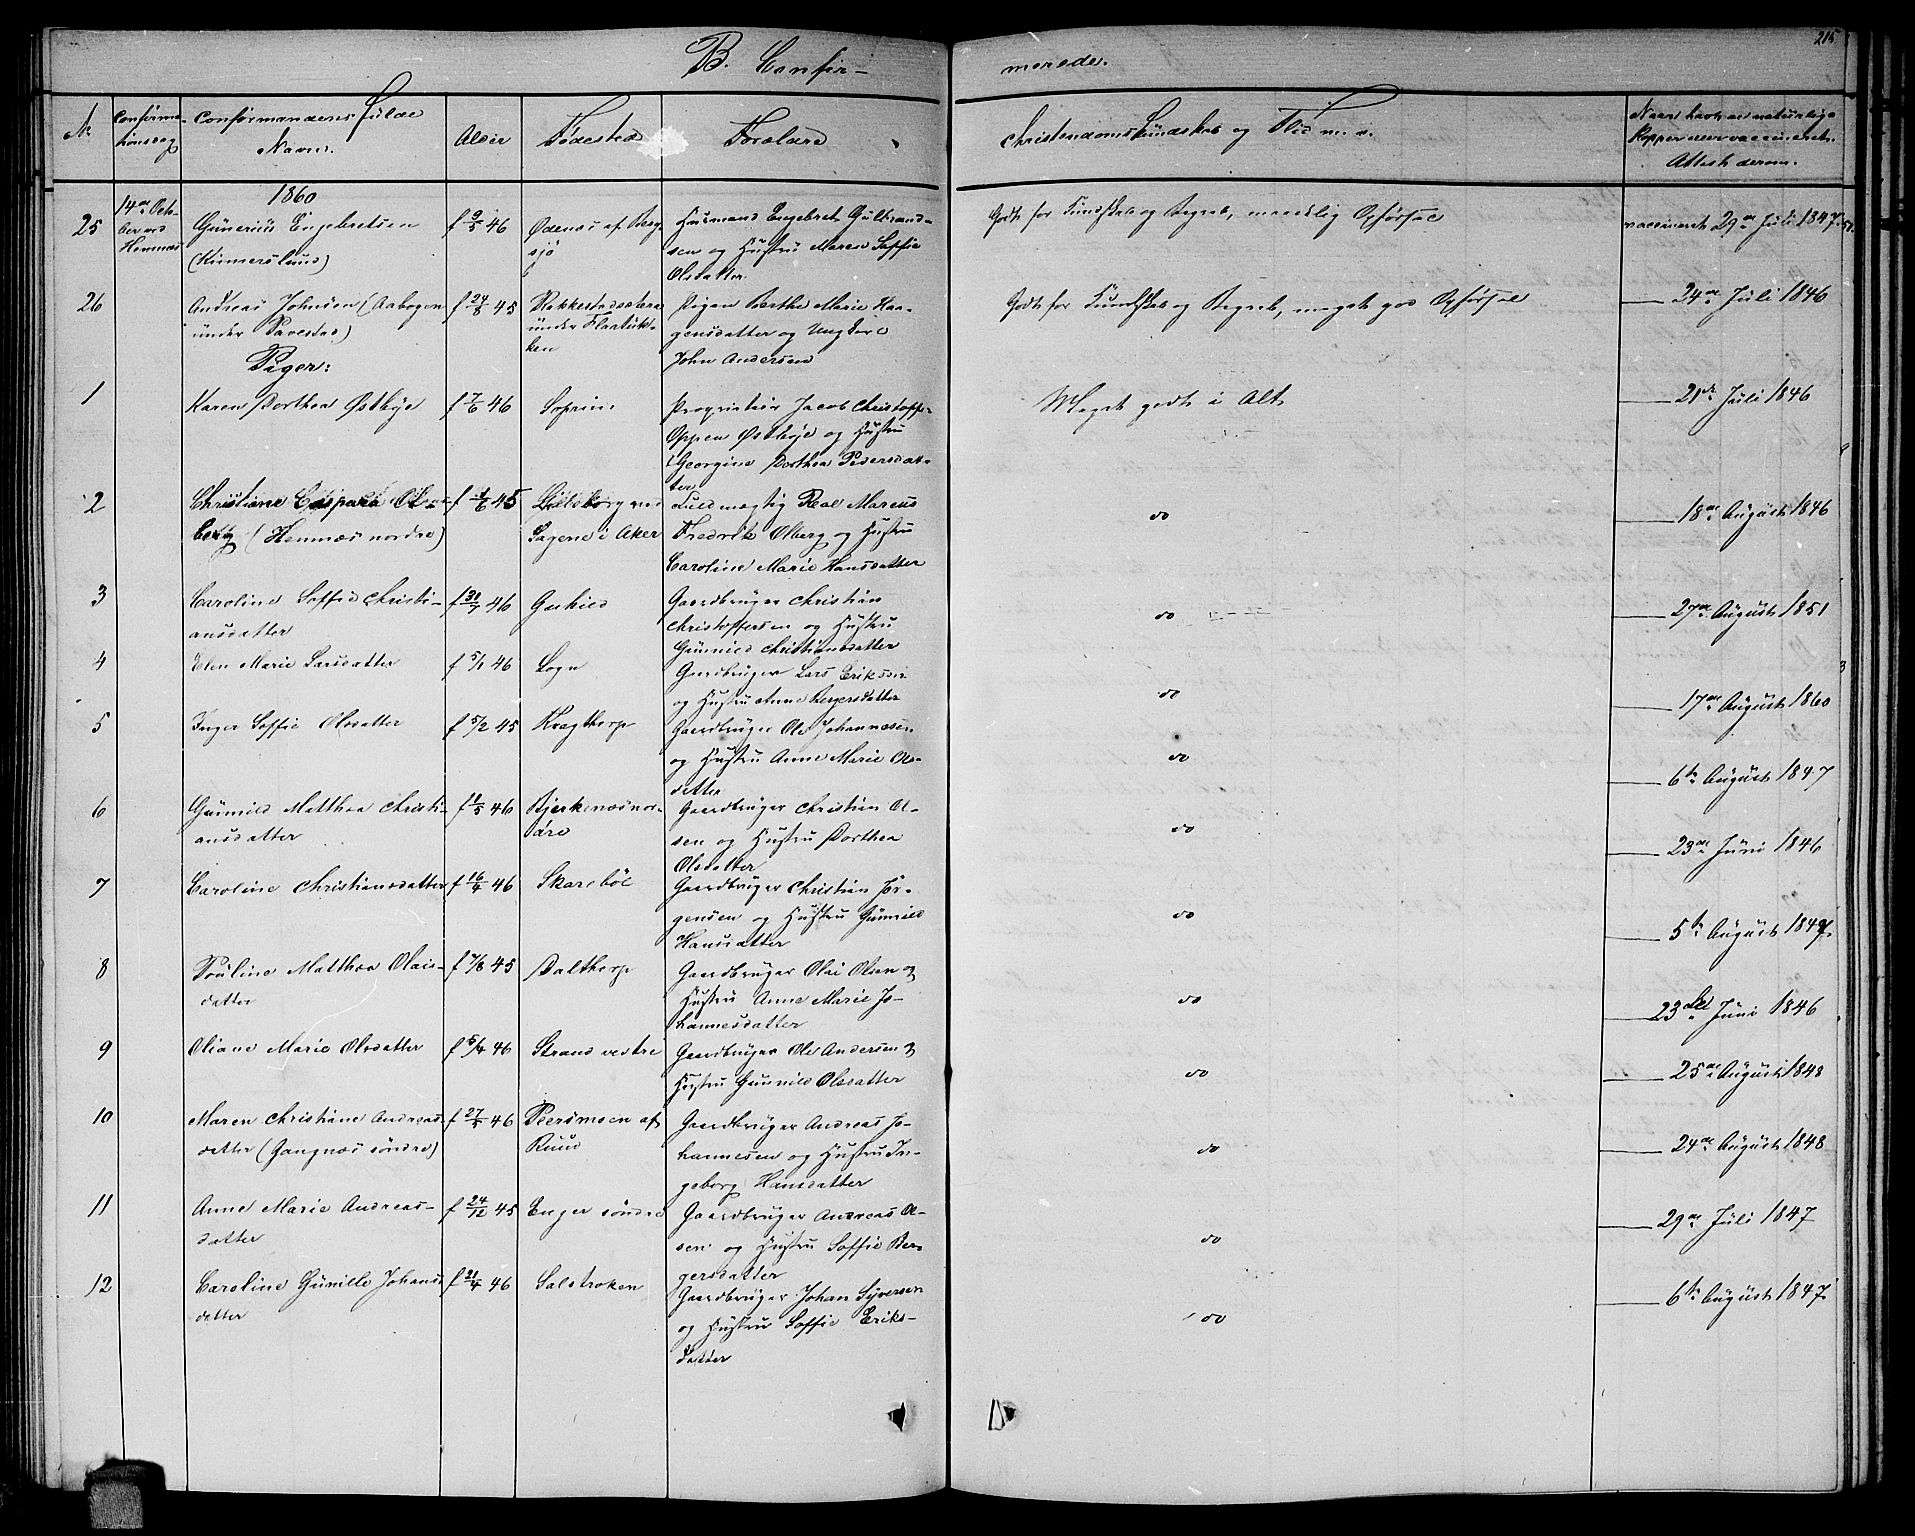 215
B. Confir-
merede.
No
Confirma-
tionsdag
Confirmandens fulde
Navn.
Alder
Fødested
Forældre
Christendomskundskab og Flid m. v.
Naar havt de naturlige
Kopper eller vaccineret.
Attest derom.
1860
25
14de Octo-
ber ved
Hemnæs
Gunerius Engebretsen
(Kinnerslund)
f 9/5 46
Ødenæs af Berg-
sjö
Huusmand Engebret Gulbrand-
sen og Hustru Maren Soffie
Olsdatter
Godt for Kundskab og Begreb, maadelig Opførsel
vaccineret 29de Juli 1847.
26
Andreas Johnsen (Aabogen
under Tavestad)
f 24/8 45
Rakkestadsætere
under
Pigen Berthe Marie Haa-
gensdatter og Ungkarl
John Andersen
Godt for Kundskab og Begreb, meget god Opførsel
24de Juli 1846
Piger:
1
Karen Dorthea Østbye
f 7/6 46
Soprim
Proprietær Jacob Christoffer
Oppen Østbye og Hustru
Georgine Dorthea Pedersdat-
ter
Meget godt i Alt
21de Juli 1846
2
Christiane Caspara Ol-
berg (Hemnæs nordre)
f 1/6 45
Sagene i Aker
Fuldmægtig Real Marcus
Fredrik Olberg og Hustru
Caroline Marie Hansdatter
do
18de August 1846
3
Caroline Soffie Christi-
ansdatter
f 31/7 46
Gaardbruger Christian
Christoffersen og Hustru
Gunnild Christiansdatter
do
27de August 1851
4
Elen Marie Larsdatter
f 5/1 46
Sogn
Gaardbruger Lars Eriksen
og Hustru Anne Bergersdatter
do
17de August 1860
5
Inger Soffie Olsdatter
f 5/2 45
Kragtorp
Gaardbruger Ole Johannesen
og Hustru Anne Marie Ols-
datter
do
6te August 1847
6
Gunnild Matthea Christi-
ansdatter
f 1/5 46
Bjerkenæs nor-
dre
Gaardbruger Christian Ol-
sen og Hustru Dorthea
Olsdatter
do
23de Juni 1846
7
Caroline Christiansdatter
f 16/4 46
Skarebøl
Gaardbruger Christian Jör-
gensen og Hustru Gunnild
Hansdatter
do
5te August 1847.
8
Pouline Matthea Olais-
datter
f 7/8 45
Dalthorp
Gaardbruger Olai Olsen og
Hustru Anne Marie Jo-
hannesdatter
do
23de Juni 1846
9
Oliane Marie Olsdatter
f 5/4 46
Strand vestre
Gaardbruger Ole Andersen og
Hustru Gunnild Olsdatter
do
25de August 1848
10
Maren Christiane Andreas-
datter (Gangnæs söndre)
f 27/5 46
Peersmoen af
Ruud
Gaardbruger Andreas Jo-
hannesen og Hustru In-
geborg Hansdatter
do
24de August 1848
11
Anne Marie Andreas-
datter
f 24/12 45
Enger söndre
Gaardbruger Andreas Ol-
sen og Hustru Soffie Ber-
gersdatter
do
29de Juli 1847
12
Caroline Gunille Johans
datter
f 21/4 46
Salstroken
Gaardbruger Johan Syversen
og Hustru Soffie Eriks-
datter
do
6te August 1847